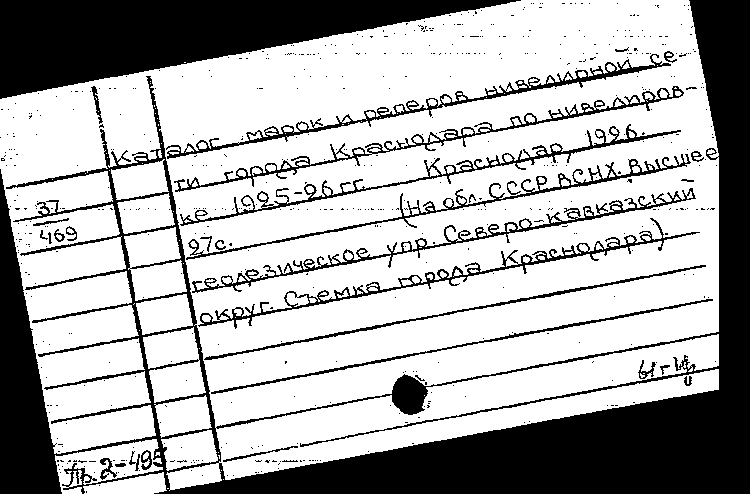 Каталог марок и реперов нивелирной се-
ти города Краснодара по нивелиров-
ке 1925-26 гг. Краснодар, 1926.
27с. (На обл. СССР ВСНХ. Высшее
геодезическое упр. Северо-кавказский
округ. Съемка города Краснодара)
37
469
Пр. 2-495